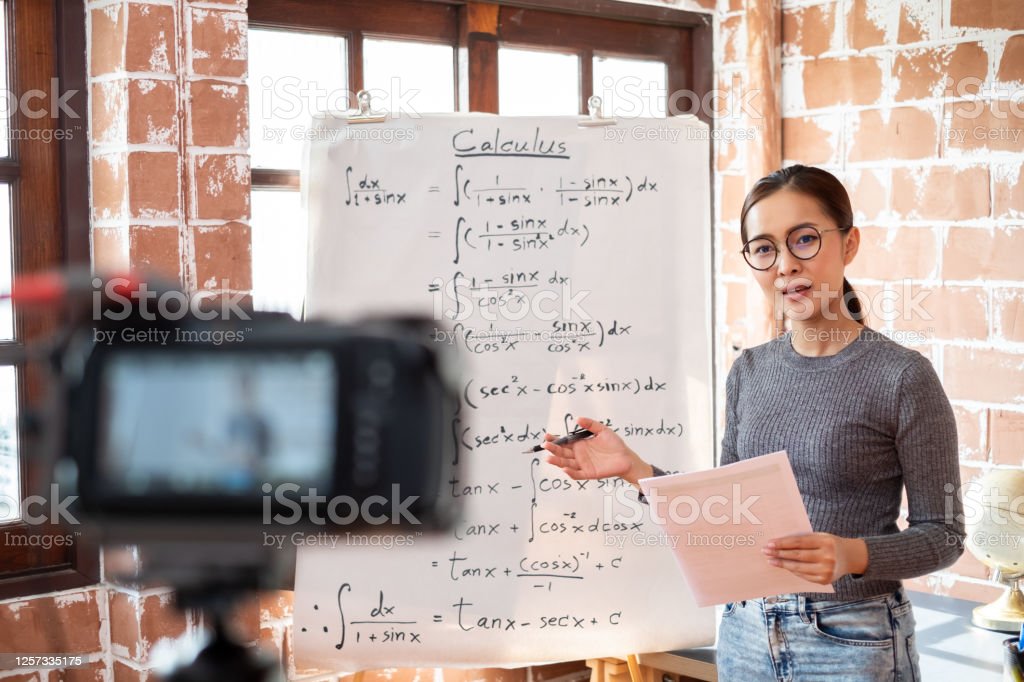 Calculus
∫ dx/(1+sinx) = ∫(1/(1+sinx) · (1-sinx)/(1-sinx))dx
= ∫((1-sinx)/(1-sin²x) dx)
= ∫(1-sinx)/cos²x dx
∫(1/cos²x - sinx/cos²x)dx
(sec²x - cos⁻²x sinx)dx
∫(sec²xdx) sinxdx)
tanx - ∫cos
tanx + ∫cos⁻²x dcosx
= tanx + (cosx)⁻¹/-1 + c
∴ ∫ dx/(1+sinx) = tanx - secx + c
iStock
Credit: Chaay_Tee
1257335175